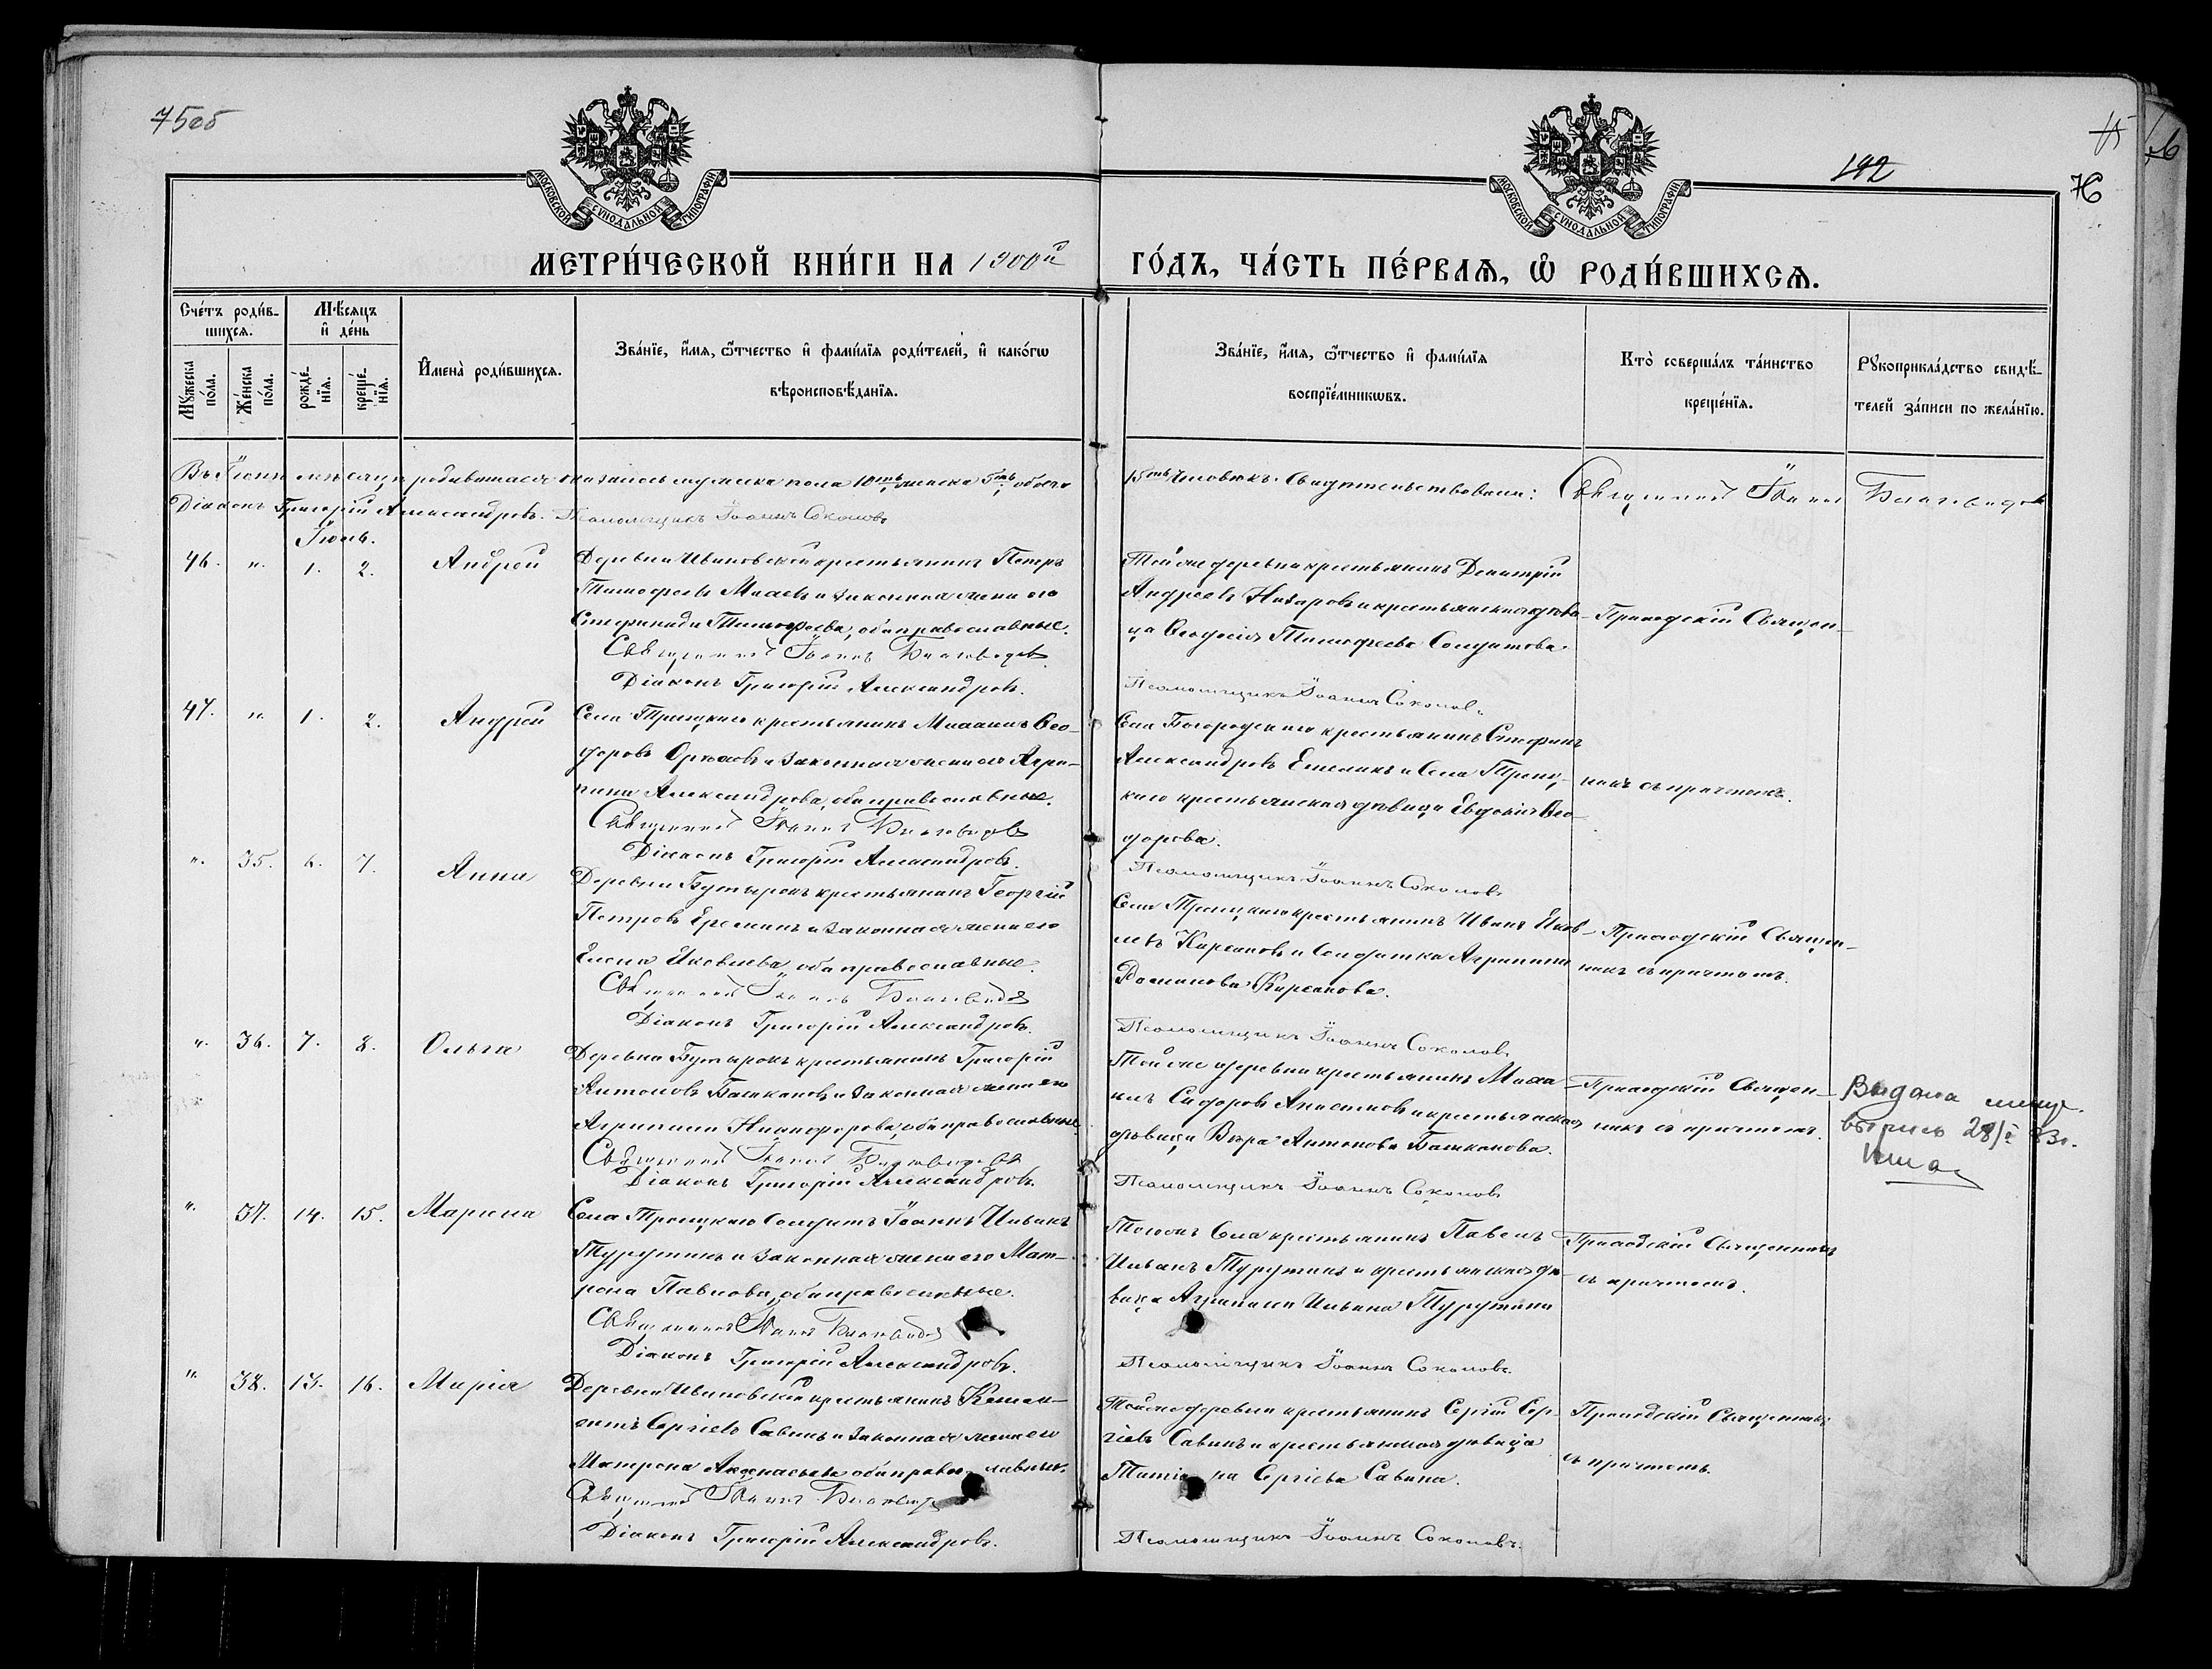 75об
192
76
МОСКОВСКОЙ СѴНОДАЛЬНОЙ ТИПОГРАФІИ
МОСКОВСКОЙ СѴНОДАЛЬНОЙ ТИПОГРАФІИ
МЕТРИ́ЧЕСКОЙ КНИ́ГИ НА 1900й ГО́ДЪ, ЧА́СТЬ ПЕ́РВАѦ, Ѽ РОДИ́ВШИХСѦ.
Сче́тъ роди́в-
шихсѧ.
Мѣ́сѧцъ
и҆ де́нь
Мꙋ́жеска по́ла.
Же́нска по́ла.
рожде́-
нїѧ.
креще́-
нїѧ.
И҆мена̀ роди́вшихсѧ.
Зва́нїе, и҆́мѧ, ѻ҆́тчество и҆ фами́лїѧ роди́телей, и҆ како́гѡ
вѣроисповѣ́данїѧ.
Зва́нїе, и҆́мѧ, ѻ҆́тчество и҆ фами́лїѧ
воспрїе́мникѡвъ.
Кто̀ соверша́лъ та́инство
креще́нїѧ.
Рꙋкоприкла́дство свидѣ́-
телей за́писи по жела́нїю.
мѣсяцѣ родившихся мужеска пола 10ть женска 5ть, обоего 15ть человѣкъ. Свидѣтельствовали: Священникъ Іоаннъ Благовидов
Діаконъ Григорій Александровъ. Псаломщикъ Іоаннъ Соколовъ
Іюнь.
46. " 1. 2. Андрей
Деревни Ивановской крестьянинъ Петръ
Тимофеевъ и законная жена его
Тимофеева, оба православные.
Священникъ Іоаннъ Благовидовъ
Діаконъ Григорій Александровъ.
Той же деревни крестьянинъ Димитрій
Андреевъ Назаровъ и крестьянская дѣви-
ца Ѳеодосія Тимофеева Солдатова.
Псаломщикъ Іоаннъ Соколовъ
Приходскій Священ-
никъ съ причтомъ.
47. " 1. 2. Андрей
Села Троицкаго крестьянинъ Михаилъ Ѳео-
доровъ и законная жена его Агри-
пина Александрова, оба православные.
Священникъ Іоаннъ Благовидовъ
Діаконъ Григорій Александровъ.
Села Богородскаго крестьянинъ Стефанъ
Александровъ Емелинъ и Села Троиц-
каго крестьянская дѣвица Евдокія Ѳео-
дорова.
Псаломщикъ Іоаннъ Соколовъ
" 35. 6. 7. Анна
Деревни Бутырокъ крестьянинъ Георгій
Петровъ Ереминъ и законная жена его
Елена Яковлева, оба православные.
Священникъ Іоаннъ Благовидов
Діаконъ Григорій Александровъ.
Села Троицкаго крестьянинъ Иванъ Яков-
левъ Кирсановъ и Солдатка Агрипина
Романова Кирсанова.
Псаломщикъ Іоаннъ Соколовъ
Приходскій Священ-
никъ съ причтомъ.
" 36. 7. 8. Ольга
Деревни Бутырокъ крестьянинъ Григорій
Антоновъ Башкановъ и законная жена его
Агрипина Никифорова, оба православные.
Священникъ Іоаннъ Благовидовъ
Діаконъ Григорій Александровъ.
Той же деревни крестьянинъ Миха-
илъ Сидоровъ Анисимовъ и крестьянская
дѣвица Вѣра Антонова Башканова.
Псаломщикъ Іоаннъ Соколовъ
Приходскій Священ-
никъ съ причтомъ.
Выдана
выпись 28/
" 37. 14. 15. Марина
Села Троицкаго Солдатъ Іоаннъ Ильинъ
Турутинъ и законная жена его Мат-
рона Павлова, оба православные.
Священникъ Іоаннъ Благовидов
Діаконъ Григорій Александровъ.
Того же Села крестьянинъ Павелъ
Ильинъ Турутинъ и крестьянская дѣ-
вица Агрипина Ильина Турутина
Псаломщикъ Іоаннъ Соколовъ.
Приходскій Священникъ
съ причтомъ.
" 38. 16. Марія
Деревни Ивановской крестьянинъ Климен-
тъ Сергіевъ Савинъ и законная жена его
Матрона оба православные.
Священникъ Іоаннъ Благовидов
Діаконъ Григорій Александровъ.
Той же деревни крестьянинъ Сергій Сер-
гіевъ Савинъ и крестьянская дѣвица
Сергіева Савина.
Псаломщикъ Іоаннъ Соколовъ.
Приходскій Священникъ
съ причтомъ.